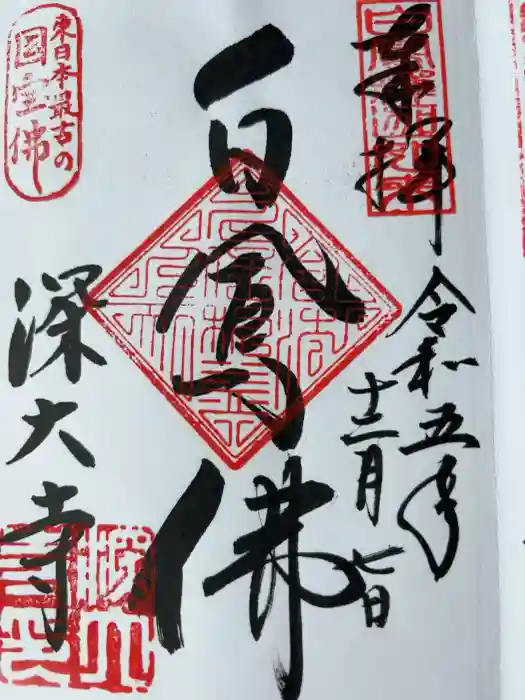 奉拝
令和五年
十二月七日
白鳳佛
東日本最古の
国宝佛
深大寺